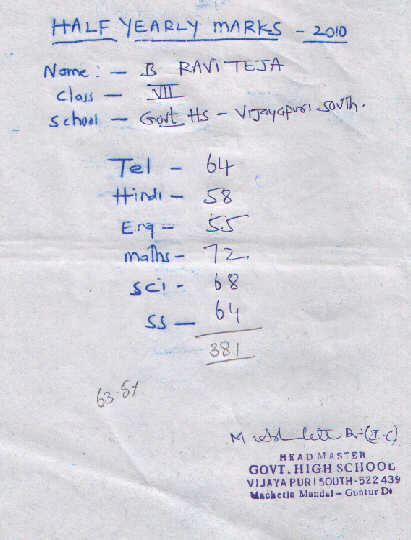 HALF YEARLY MARKS - 2010
Name: - B RAVITEJA
Class - VII
School - Govt HS - Vijayapuri South.
Tel - 64
Hindi - 58
Eng - 55
maths - 72.
Sci - 68
SS - 64
381
63.51
HEAD MASTER
GOVT. HIGH SCHOOL
VIJAYAPURI SOUTH-522 439
Macherla Mandal - Guntur Dt